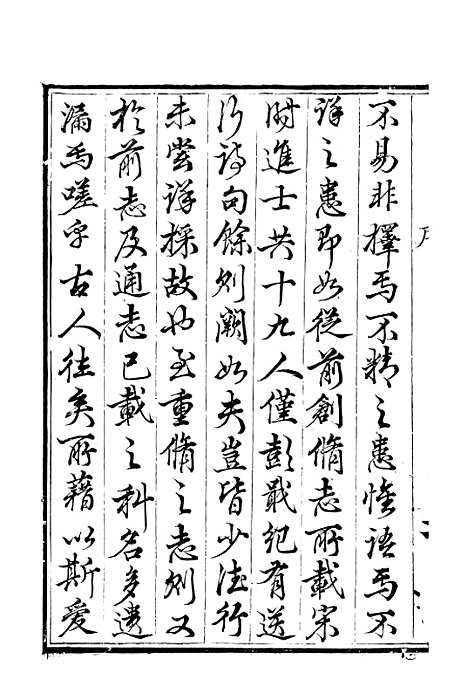 不易非擇焉不精之患惟語焉不
詳之患即如從前創脩志所載宋
時進士共十九人僅彭戢紀有送
行詩句餘則闕如夫豈皆少德行
未嘗詳採故也至重脩之志則又
於前志及通志已載之科名多遺
漏焉嗟乎古人往矣所藉以斯愛